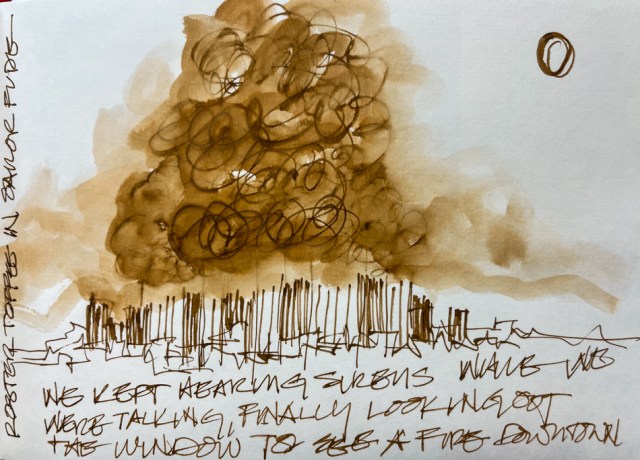 ROSTER TOFFEE IN SAILOR FUDE
WE KEPT HEARING SIRENS WHILE WE
WERE TALKING, FINALLY LOOKING OUT
THE WINDOW TO SEE A FIRE DOWNTOWN